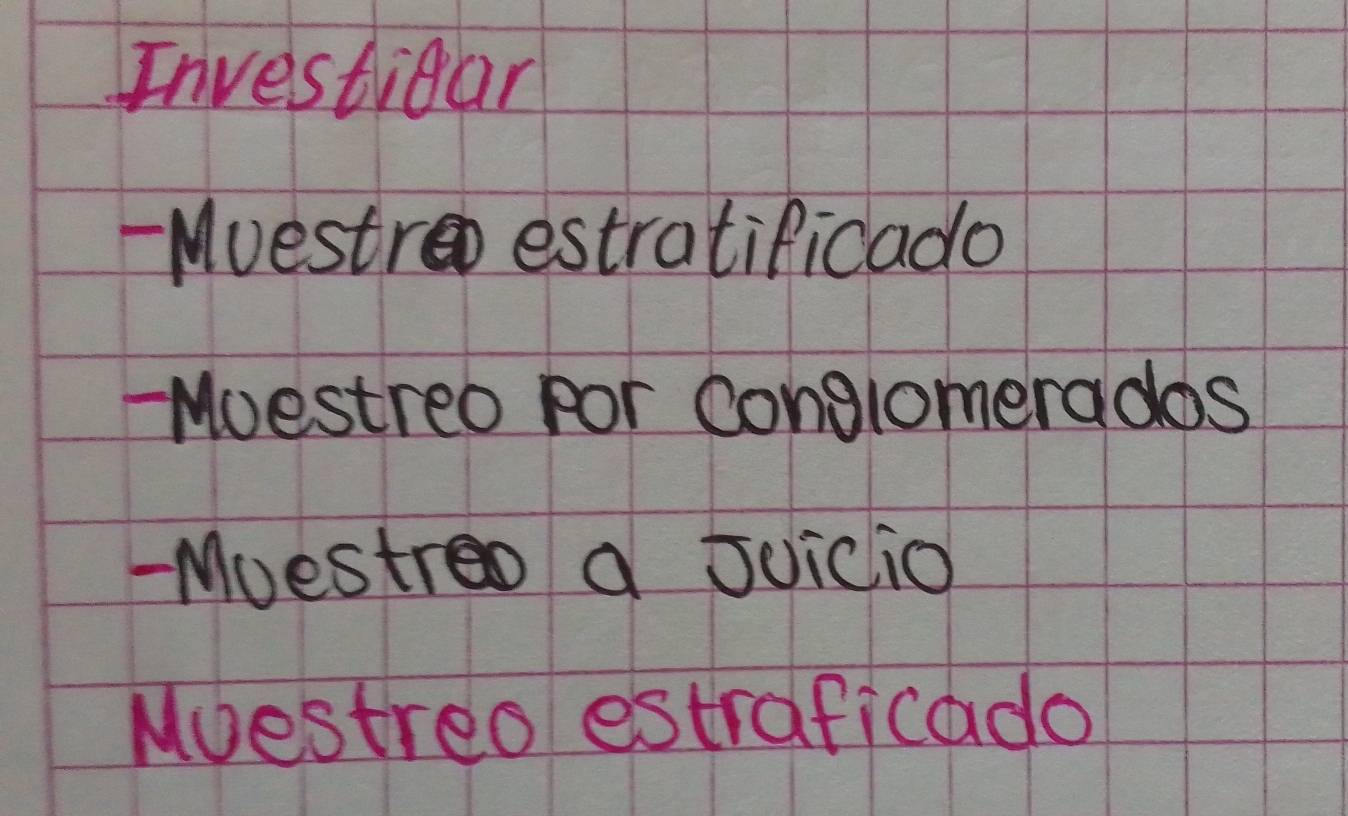 Investigar
-Muestreo estratificado
-Muestreo por conglomerados
-Muestreo a Juicio
Muestreo estraficado